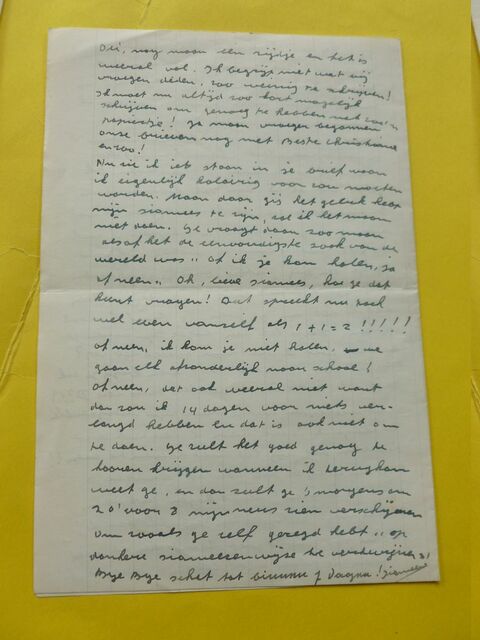 Oei, nog maar een zijdje en het is
weeral vol. Ik begrijp niet wat wij
vroeger deden, zoo weinig te schrijven!
Ik moet nu altijd zoo kort mogelijk
schrijven om genoeg te hebben met zoo'n
papiertje! Ge moen vroeger begonnen
onze brieven nog met Beste Christiane
enzoo!
Nu zie ik iets staan in je brief waar
ik eigenlijk kolairig voor zou moeten
worden. Maar daar gij het geluk hebt
mijn siamees te zijn, zal ik het maar
niet doen. Ge vraagt daar zoo maar
alsof het de eenvoudigste zaak van de
wereld was „ of ik je kom halen, ja
of neen„. Oh, lieve siamees, hoe ge dat
kunt vragen! Dat spreekt nu toch
wel even vanself als 1 + 1 = 2 !!!!!
Of neen, ik kom je niet halen, we
gaan elk afzonderlijk naar school!
Of neen, dat ook weeral niet want
dan zou ik 14 dagen voor niets ver-
langd hebben en dat is ook niet om
te doen. Ge zult het goed genoeg te
hooren krijgen wanneer ik terugkom
weet ge, en dan zult ge 's morgens om
20' voor 8 mijn neus zien verschijnen
om zooals ge zelf gezegd hebt „ op
donkere siameezenwijze te verdwijnen "!
Bye Bye schat tot binnen 7 dagen! siamees